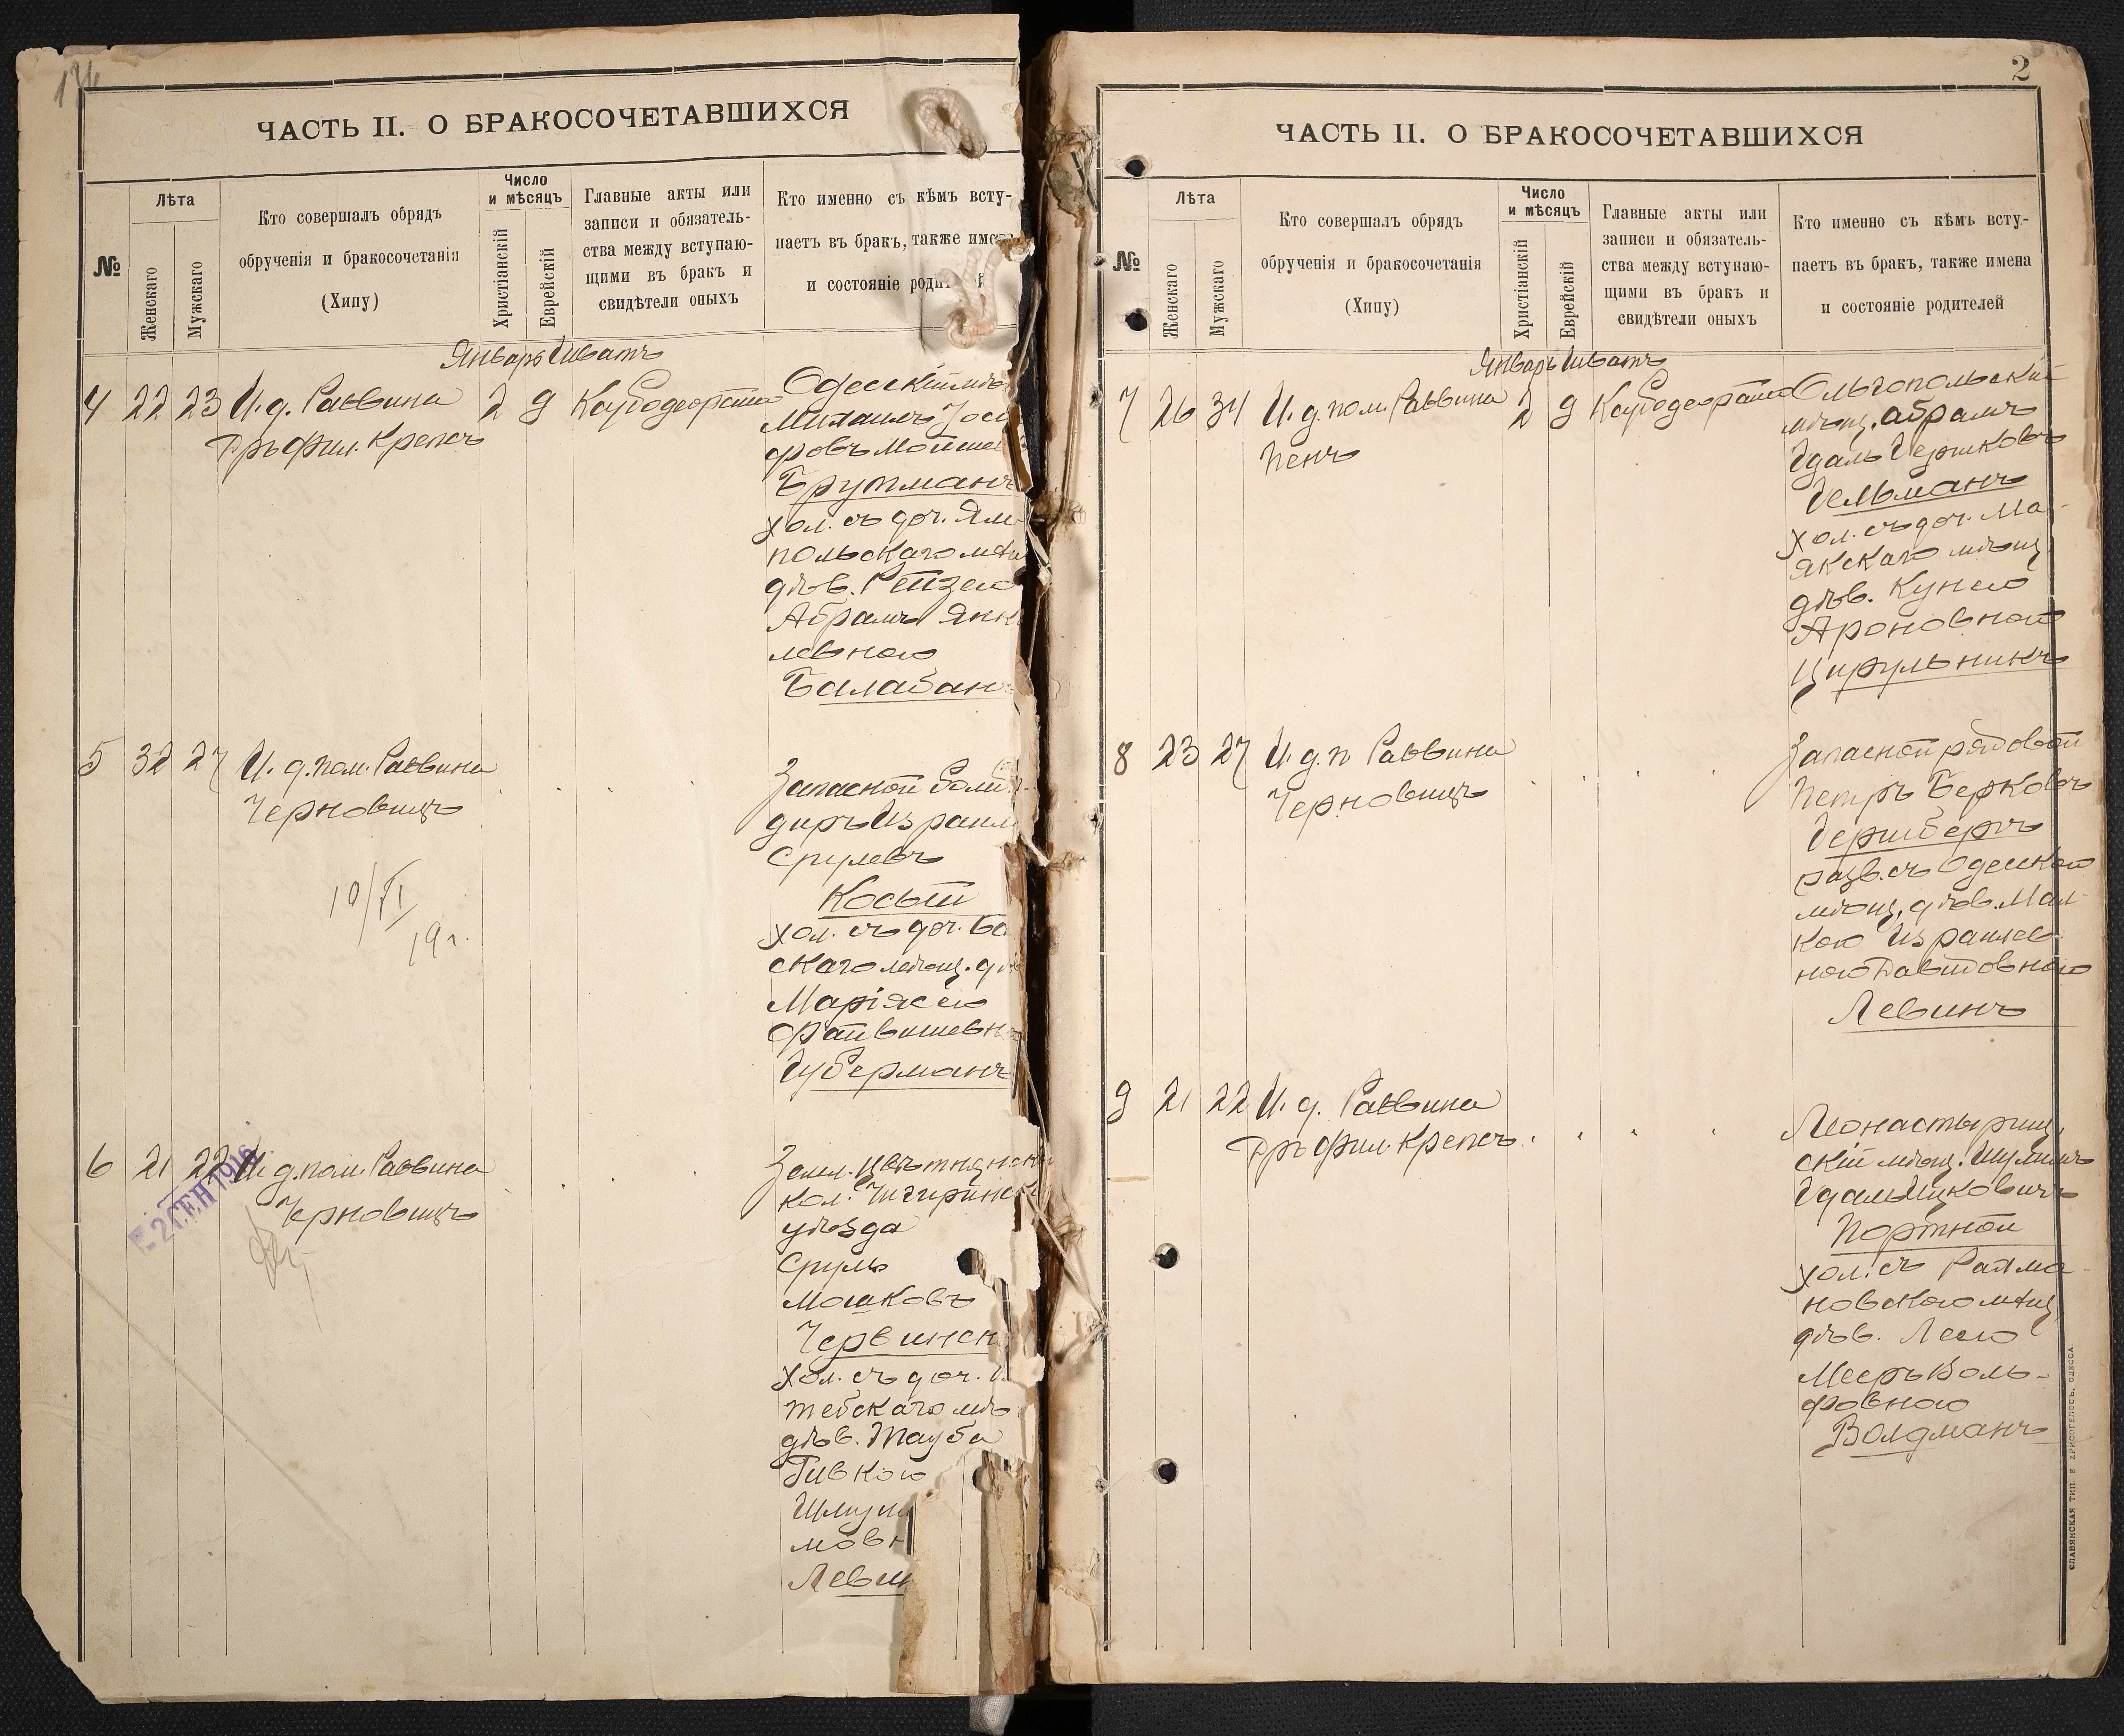 ЧАСТЬ II. О БРАКОСОЧЕТАВШИХСЯ
№
Лѣта
Женскаго
Мужскаго
Кто совершалъ обрядъ
обрученія и бракосочетанія
(Хипу)
Число
и мѣсяцъ
Христіанскій
Еврейскій
Главные акты или
записи и обязатель-
ства между вступаю-
щими въ бракъ и
свидѣтели оныхъ
Кто именно съ кѣмъ всту-
паетъ въ бракъ, также имена
и состояніе
Январь Шватъ
4 22 23 И. д. Раввина 2 9
Дръ фил. Крепсъ
Одесскій
Михаилъ
Брутманъ
хол. съ доч. Ям-
польскаго мѣщ
дѣв. Рейзею
Абрамъ Янк
левною
Балабан
5 32 27 И. д. пом. Раввина
Черновицъ
10/VI
19г.
Запасной бомб
диръ Израил
Срулевъ
Косый
хол. съ доч.
скаго мѣщ.
Маріясею
Файвишевн
Губерманъ
6 21 22 И. д. пом. Раввина
Черновицъ
2 СЕН 1916
Чигиринск
уѣзда
Сруль
Мошковъ
Червинск
хол. съ доч.
дѣв. Тауба
Ривкою
мовн
Левин
2
ЧАСТЬ II. О БРАКОСОЧЕТАВШИХСЯ
№
Лѣта
Женскаго
Мужскаго
Кто совершалъ обрядъ
обрученія и бракосочетанія
(Хипу)
Число
и мѣсяцъ
Христіанскій
Еврейскій
Главные акты или
записи и обязатель-
ства между вступаю-
щими въ бракъ и
свидѣтели оныхъ
Кто именно съ кѣмъ всту-
паетъ въ бракъ, также имена
и состояніе родителей
Январь Шватъ
7 26 34 И. д. пом. Раввина 2 9
Пенъ
Ольгопольскій
мѣщ. Абрамъ
Гдаль Гершковъ
Гельманъ
хол. съ доч. Ма-
якскаго мѣщ
дѣв. Кунею
Ароновною
Цирульникъ
8 23 27 И. д. п Раввина
Черновицъ
Запасной рядовой
Петръ Берковъ
Гершбергъ
разв. съ Одесскою
мѣщ. дѣв. Мал-
кою Израилев
ною Давидовною
Левинъ
9 21 22 И. д. Раввина
Дръ фил. Крепсъ
Монастырищ
скій мѣщ. Шулимъ
Гдаль Ицковичъ
Портной
хол. съ
новскою мѣщ
дѣв. Лею
Мееръ Воль-
фовною
Волдманъ
СЛАВЯНСКАЯ ТИП. Е. ХРИСОГЕЛОСЪ, ОДЕССА